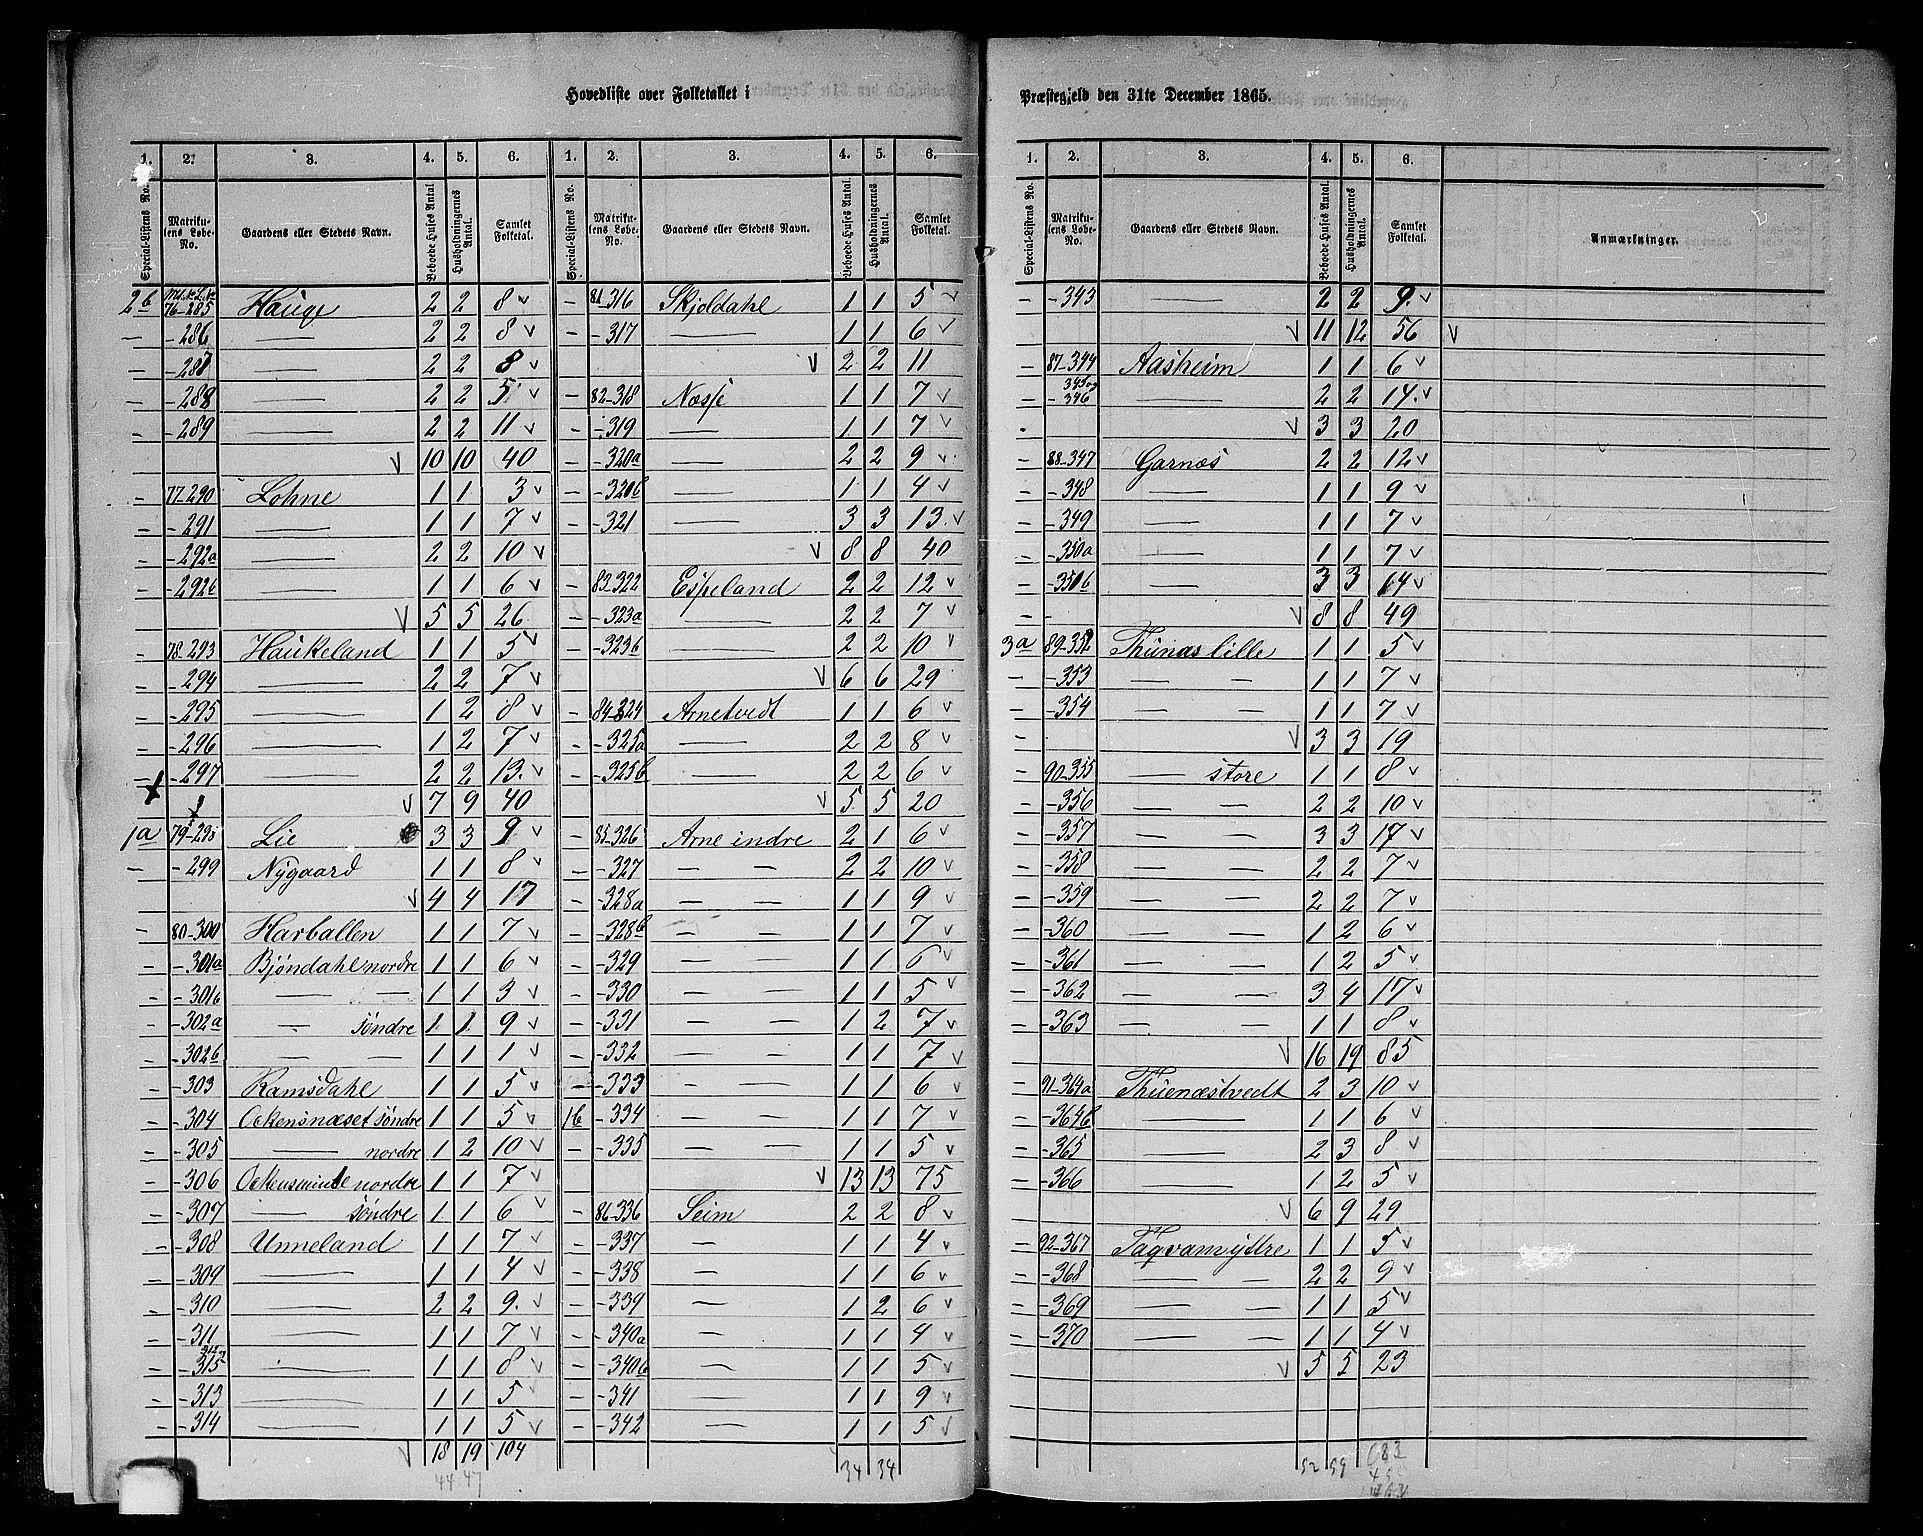 Hovedliste over Folketallet i
1. 2. 3. 4. 5. 6.
Special-Listens No. Matrikulens Løbe-No. Gaardens eller Stedets Navn. Beboede Huses Antal. Husholdningernes Antal. Samlet Folketal.
2b 76-285 Hauge 2 2 8 v
— -286 — 2 2 8 v
- -287 — 2 2 8 v
- -288 — 2 2 5 v
- -289 — 2 2 11 v
v 10 10 40
- 77-290 Lohne 1 1 3 v
- -291 — 1 1 7 v
- -292a — 2 2 10 v
- -292b — 1 1 6 v
v 5 5 26
- 78-293 Haukeland 1 1 5 v
- -294 — 2 2 7 v
- -295 — 1 2 8 v
- -296 — 1 2 7 v
- -297 — 2 2 13. v
v 7 9 40
1a 79-298 Lie 3 3 9 v
— -299 Nygaard 1 1 8 v
v 4 4 17
- 80-300 Harballen 1 1 7 v
- -301a Bjöndahl nordre 1 1 6 v
- -301b — — 1 1 3 v
- -302a — söndre 1 1 9 v
- -302b — — 1 1 1 v
- -303 Ramsdahl 1 1 5 v
- -304 Ockensnæset söndre 1 1 5 v
- -305 — nordre 1 2 10 v
- -306 Ockensminde nordre 1 1 7 v
- -307 — söndre 1 1 6 v
- -308 Unneland 1 1 7 v
- -309 — 1 1 4 v
- -310 — 2 2 9. v
- -311 — 1 1 7 v
- 312 og 315 — 1 1 8 v
- -313 — 1 1 5 v
- -314 — 1 1 5 v
v 18 19 104
44 47
1. 2. 3. 4. 5. 6.
Special-Listens No. Matrikulens Løbe-No. Gaardens eller Stedets Navn. Beboede Huses Antal. Husholdningernes Antal. Samlet Folketal.
- 81-316 Skjoldahl 1 1 5 v
- -317 — 1 1 6 v
v 2 2 11
- 82-318 Næsse 1 1 7 v
- -319 — 1 1 7 v
- -320a — 2 2 9 v
- -320b — 1 1 4 v
- -321 — 3 3 13. v
v 8 8 40
- 83-322 Espeland 2 2 12 v
- -323a — 2 2 7 v
- -323b — 2 2 10 v
v 6 6 29
- 84-324 Arnetvedt 1 1 6 v
- -325a — 2 2 8 v
- -325b — 2 2 6 v
v 5 5 20
- 85-326 Arne indre 2 1 6 v
- -327 — — 2 2 10 v
- -328a — — 1 1 9 v
- -328b — — 1 1 7 v
- -329 — — 1 1 6 v
- -330 — — 1 1 5 v
- -331 — — 1 2 7 v
- -332 — — 1 1 7 v
- -333 — — 1 1 6 v
1b -334 — — 1 1 7 v
- -335 — — 1 1 5 v
v 13 13 75
- 86-336 Seim 2 2 8 v
- -337 — 1 1 4 v
- -338 — 1 1 6 v
- -339 — 1 2 6 v
- -340a — 1 1 4 v
- -340b — 1 1 5 v
- -341 — 1 1 9 v
- -342 — 1 1 5 v
34 34
Præstegjeld den 31te December 1865.
1. 2. 3. 4. 5. 6.
Special-Listens No. Matrikulens Løbe-No. Gaardens eller Stedets Navn. Beboede Huses Antal. Husholdningernes Antal. Samlet Folketal. Anmærkninger.
- -343 — 2 2 9. v
v 11 12 56 v
- 87-344 Aasheim 1 1 6 v
- 345 og 346 — 2 2 14. v
v 3 3 20
- 88-347 Garnæs 2 2 12 v
- -348 — 1 1 9 v
- -349 — 1 1 7 v
- -350a — 1 1 7 v
- -350b — 3 3 14 v
v 8 8 49
3a 89-352 Thunæs lille 1 1 5 v
- -353 — — 1 1 7 v
- -354 — — 1 1 7 v
v 3 3 19
- 90-355 — store 1 1 8 v
- -356 — — 2 2 10 v
- -357 — — 3 3 17 v
- -358 — — 2 2 7 v
- -359 — — 2 2 7 v
- -360 — — 1 2 6 v
- -361 — — 1 2 5 v
- -362 — — 3 4 17 v
- -363 — — 1 1 8 v
v 16 19 85
- 91-364a Thuenæstvedt 2 3 10 v
- -364b — 1 1 6 v
- -365 — 2 3 8 v
- -366 — 1 2 5 v
v 6 9 29
- 92-367 Taqvam yttre 1 1 5 v
- -368 — — 2 2 9 v
- -369 — — 1 1 5 v
- -370 — — 1 1 4 v
v 5 5 23
52 59 683